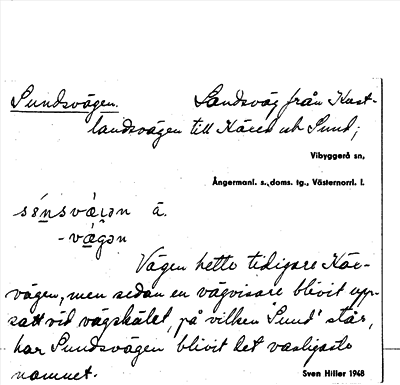 Sundsvägen. Landsväg från Kust-
landsvägen till Käxed och Sund;
Vibyggerå sn,
Ångermanl. s. doms. tg., Västernorrl. l.
a.
Vägen hette tidigare Käx-
vägen, men sedan en vägvisare blivit upp-
satt vid vägskälet, på vilken "Sund" står,
har Sundsvägen blivit det vanligaste
namnet.
Sven Hiller 1948